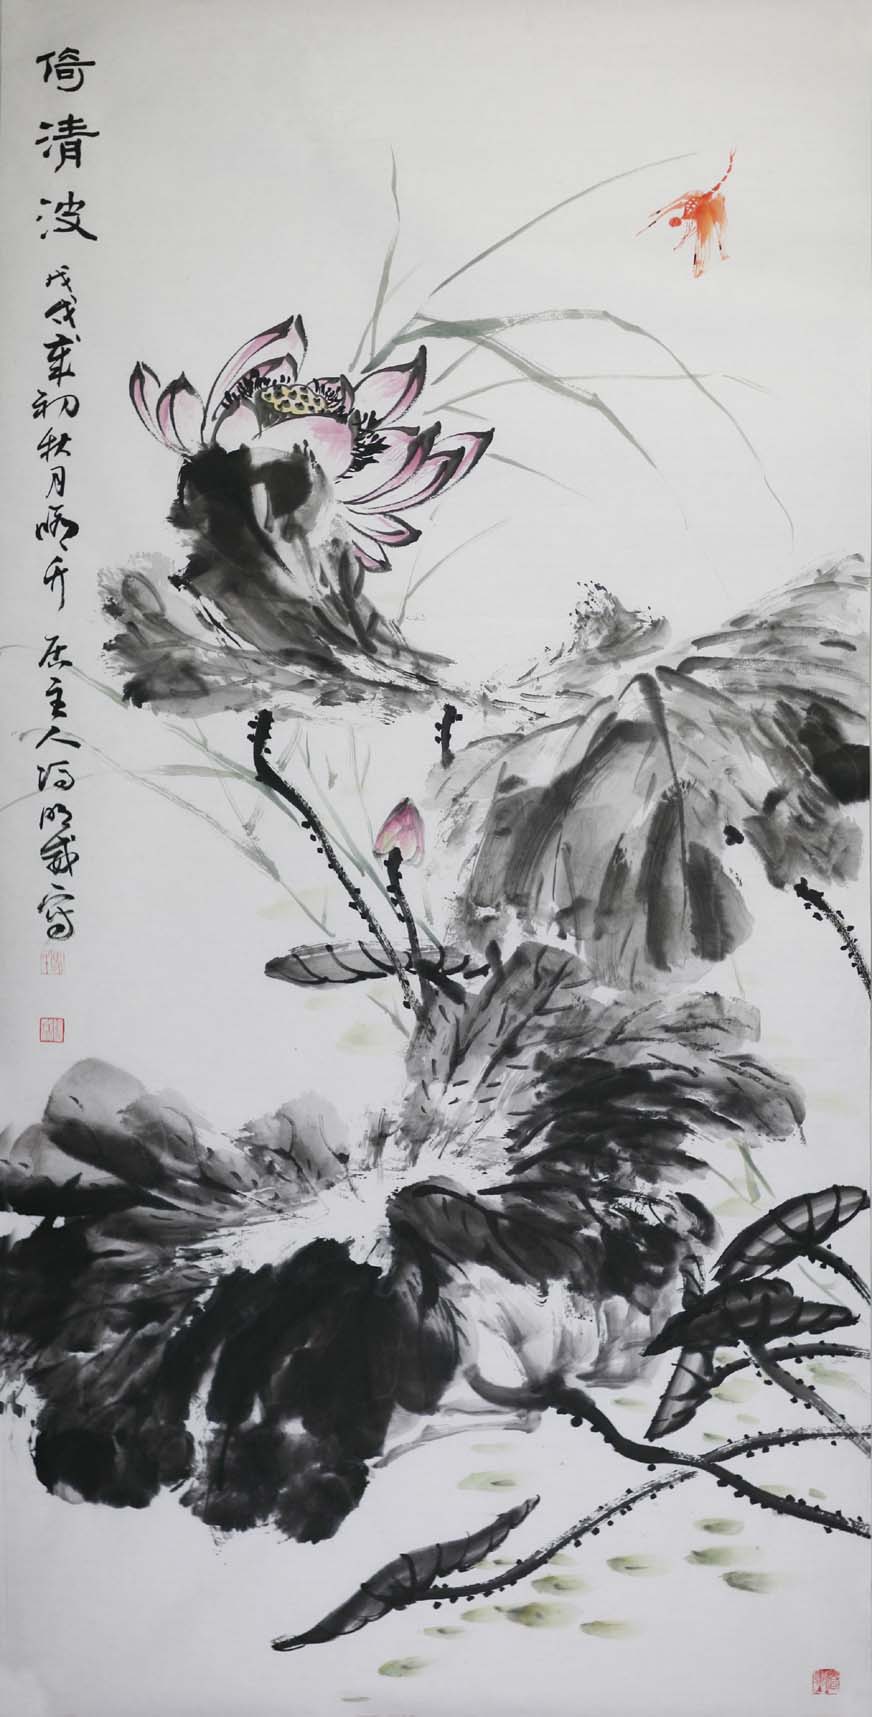 倚清波
戊戌年初秋月鸣千居主人冯明哉写